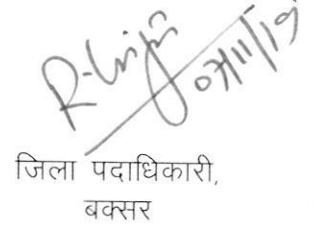 07/11/19
जिला पदाधिकारी,
बक्सर